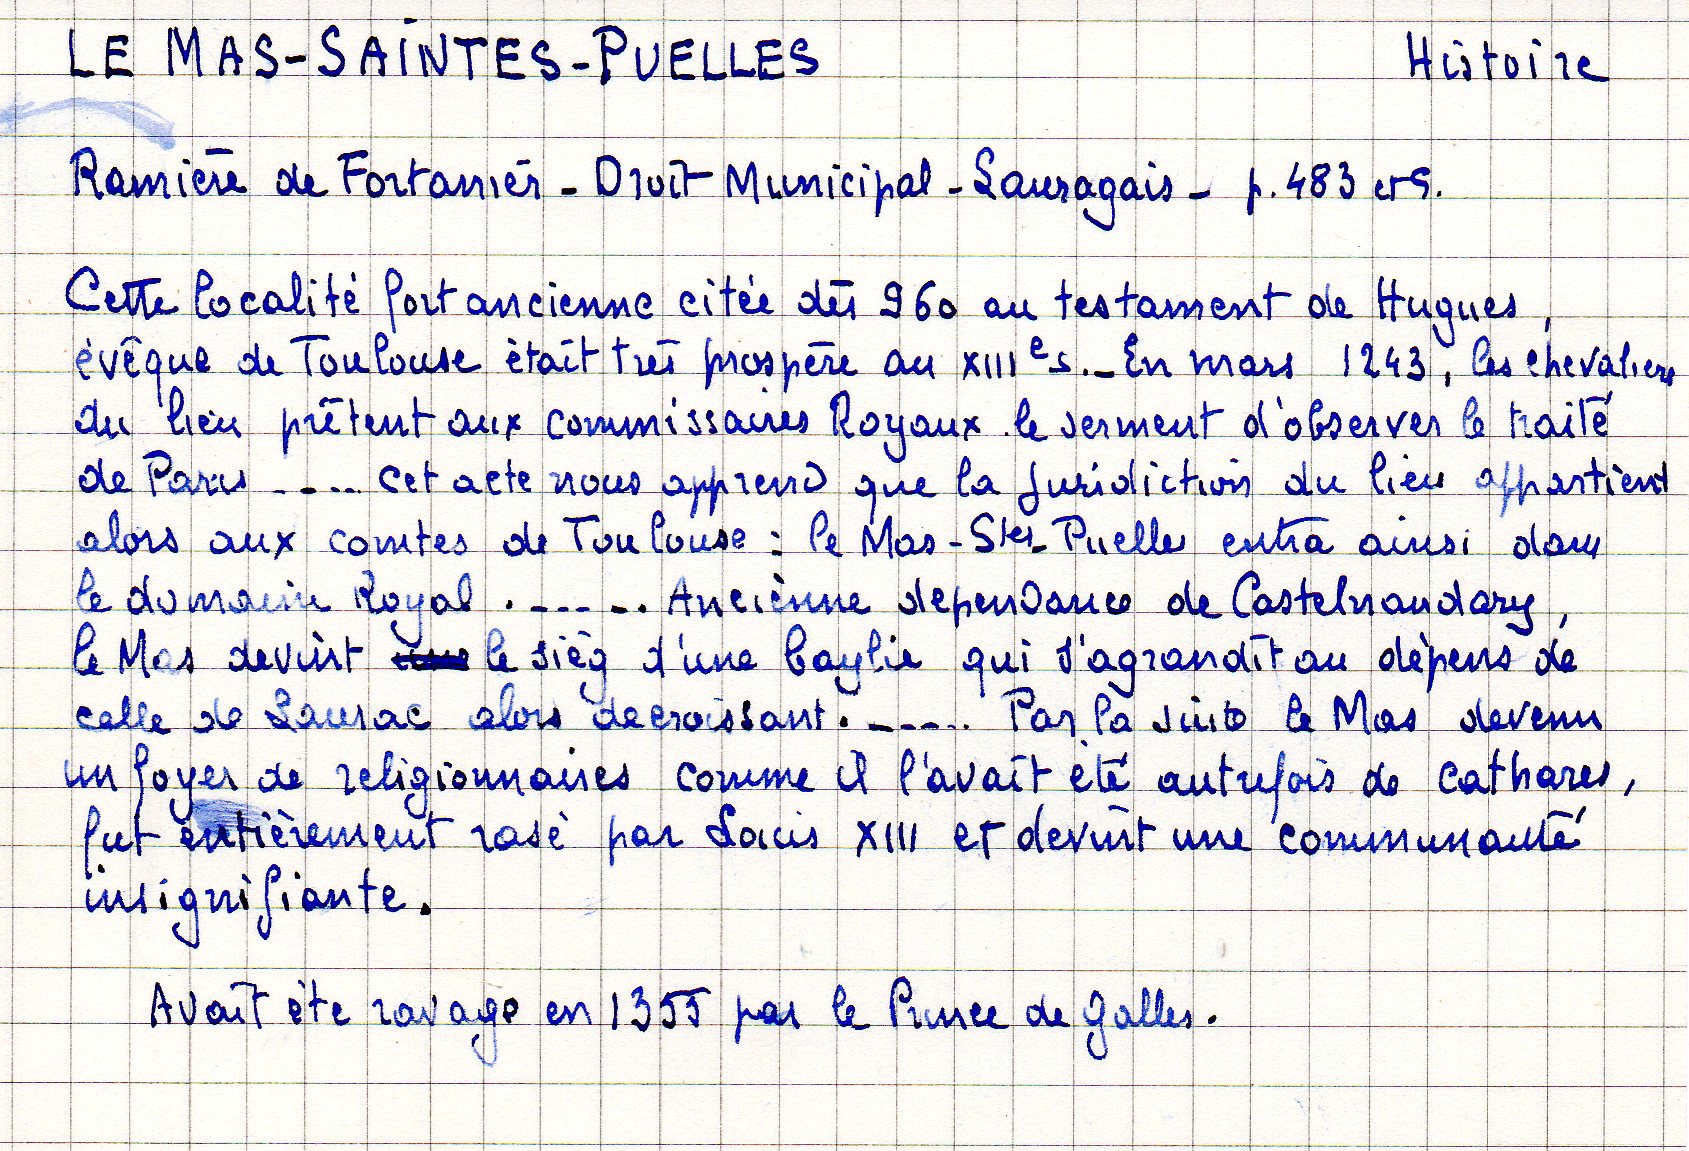 LE MAS-SAINTES-PUELLES Histoire
Ramière de Fortanier - Droit Municipal - Lauragais - p. 483 et s.
Cette localité fort ancienne citée dès 960 au testament de Hugues,
évêque de Toulouse était très prospère au XIIIe s. - En mars 1243, les chevaliers
du lieu prêtent aux commissaires Royaux le serment d'observer le traité
de Paris ----. Cet acte nous apprend que la juridiction du lieu appartient
alors aux comtes de Toulouse : le Mas-Stes-Puelles entra ainsi dans
le domaine Royal . ----. Ancienne dépendance de Castelnaudary,
le Mas devint le sièg d'une baylie qui s'agrandit au dépens de
celle de Laurac alors décroissant. ----. Par la suite le Mas devenu
un foyer de religionnaires comme il l'avait été autrefois de cathares,
fut entièrement rasé par Louis XIII et devint une communauté
insignifiante.
Avait été ravagé en 1355 par le Prince de Galles.